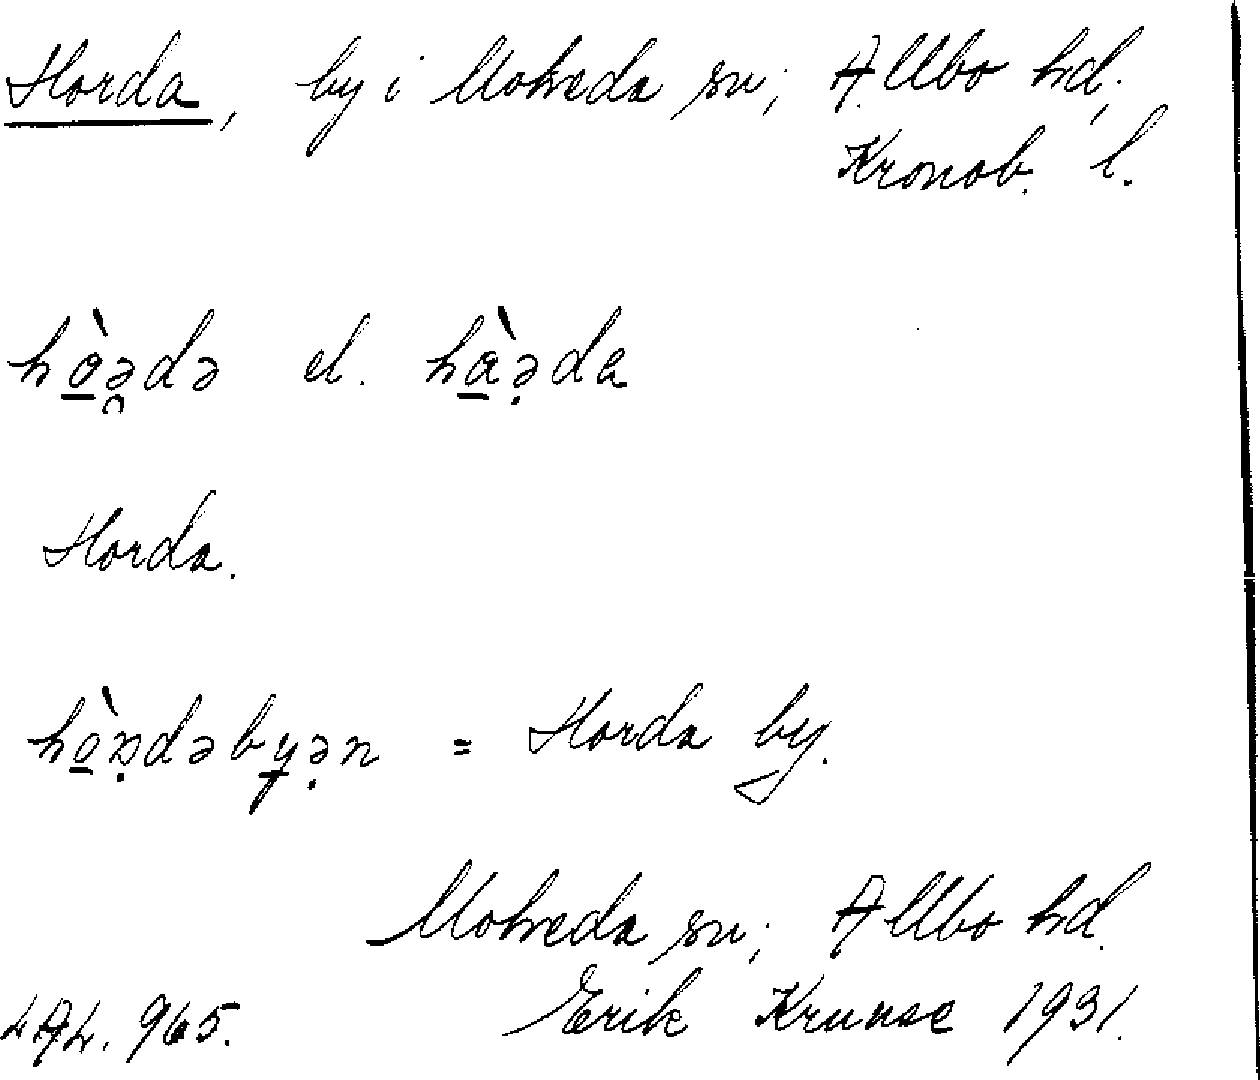 Horda, by i Moheda sn; Allbo hd,
Kronob. l.
hò̱ə̯də el. hà̱ə̣da
Horda.
hò̱ṇdəby̱ə̣n = Horda by.
Moheda sn; Allbo hd.
LAL. 965. Erik Kruuse 1931.